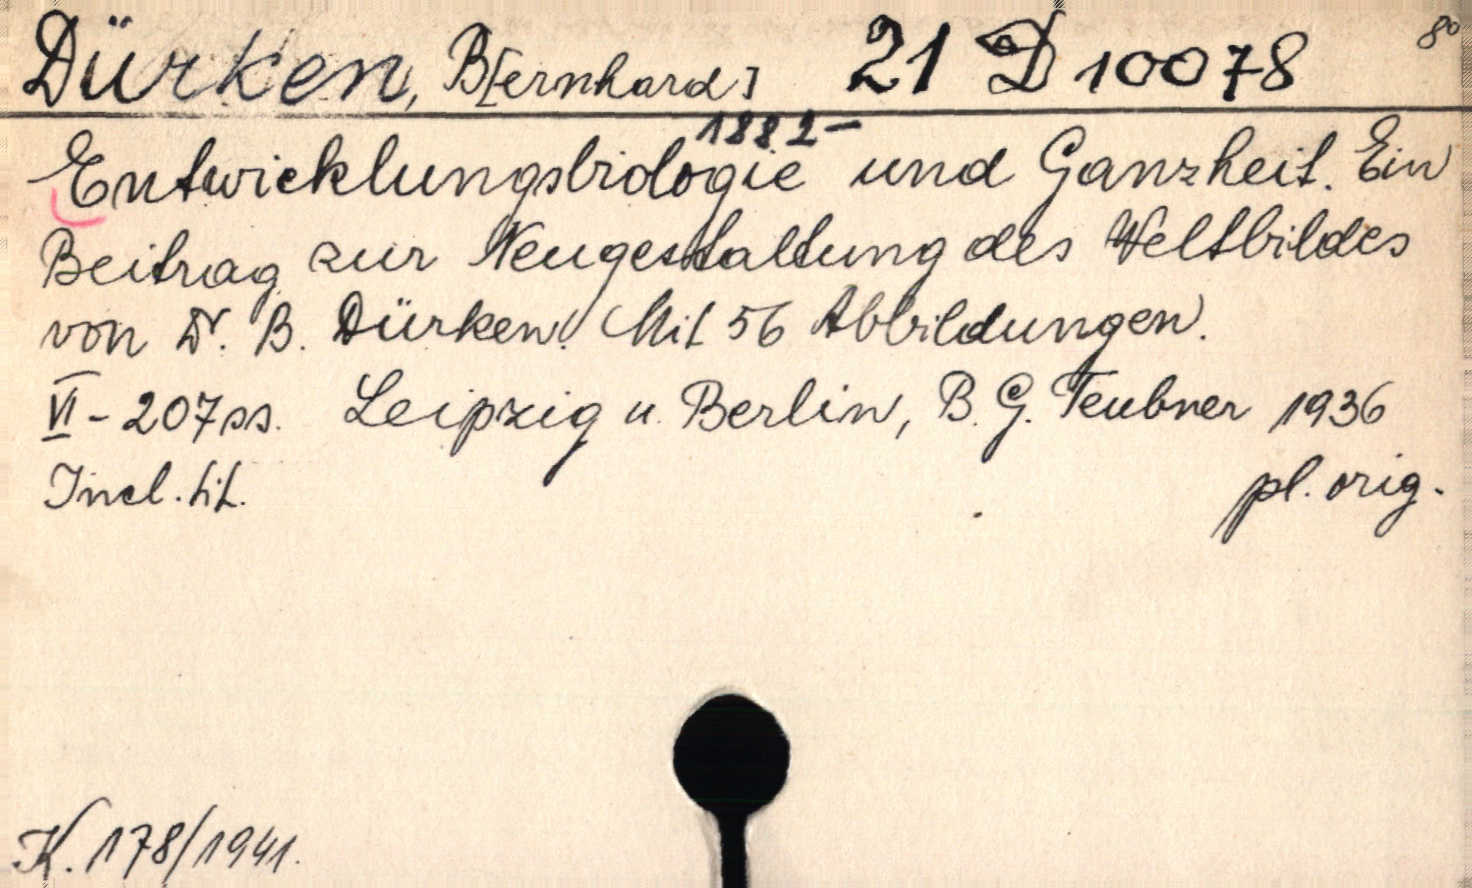 Dürken, B[ernhard] 21 D 10078 8°
1882-
Entwicklungsbiologie und Ganzheit. Ein
Beitrag zur Neugestaltung des Weltbildes
von Dr. B. Dürken. Mit 56 Abbildungen.
VI - 207 ss. Leipzig u. Berlin, B. G. Teubner 1936
Incl. tit. pl. orig.
K. 178/1941.